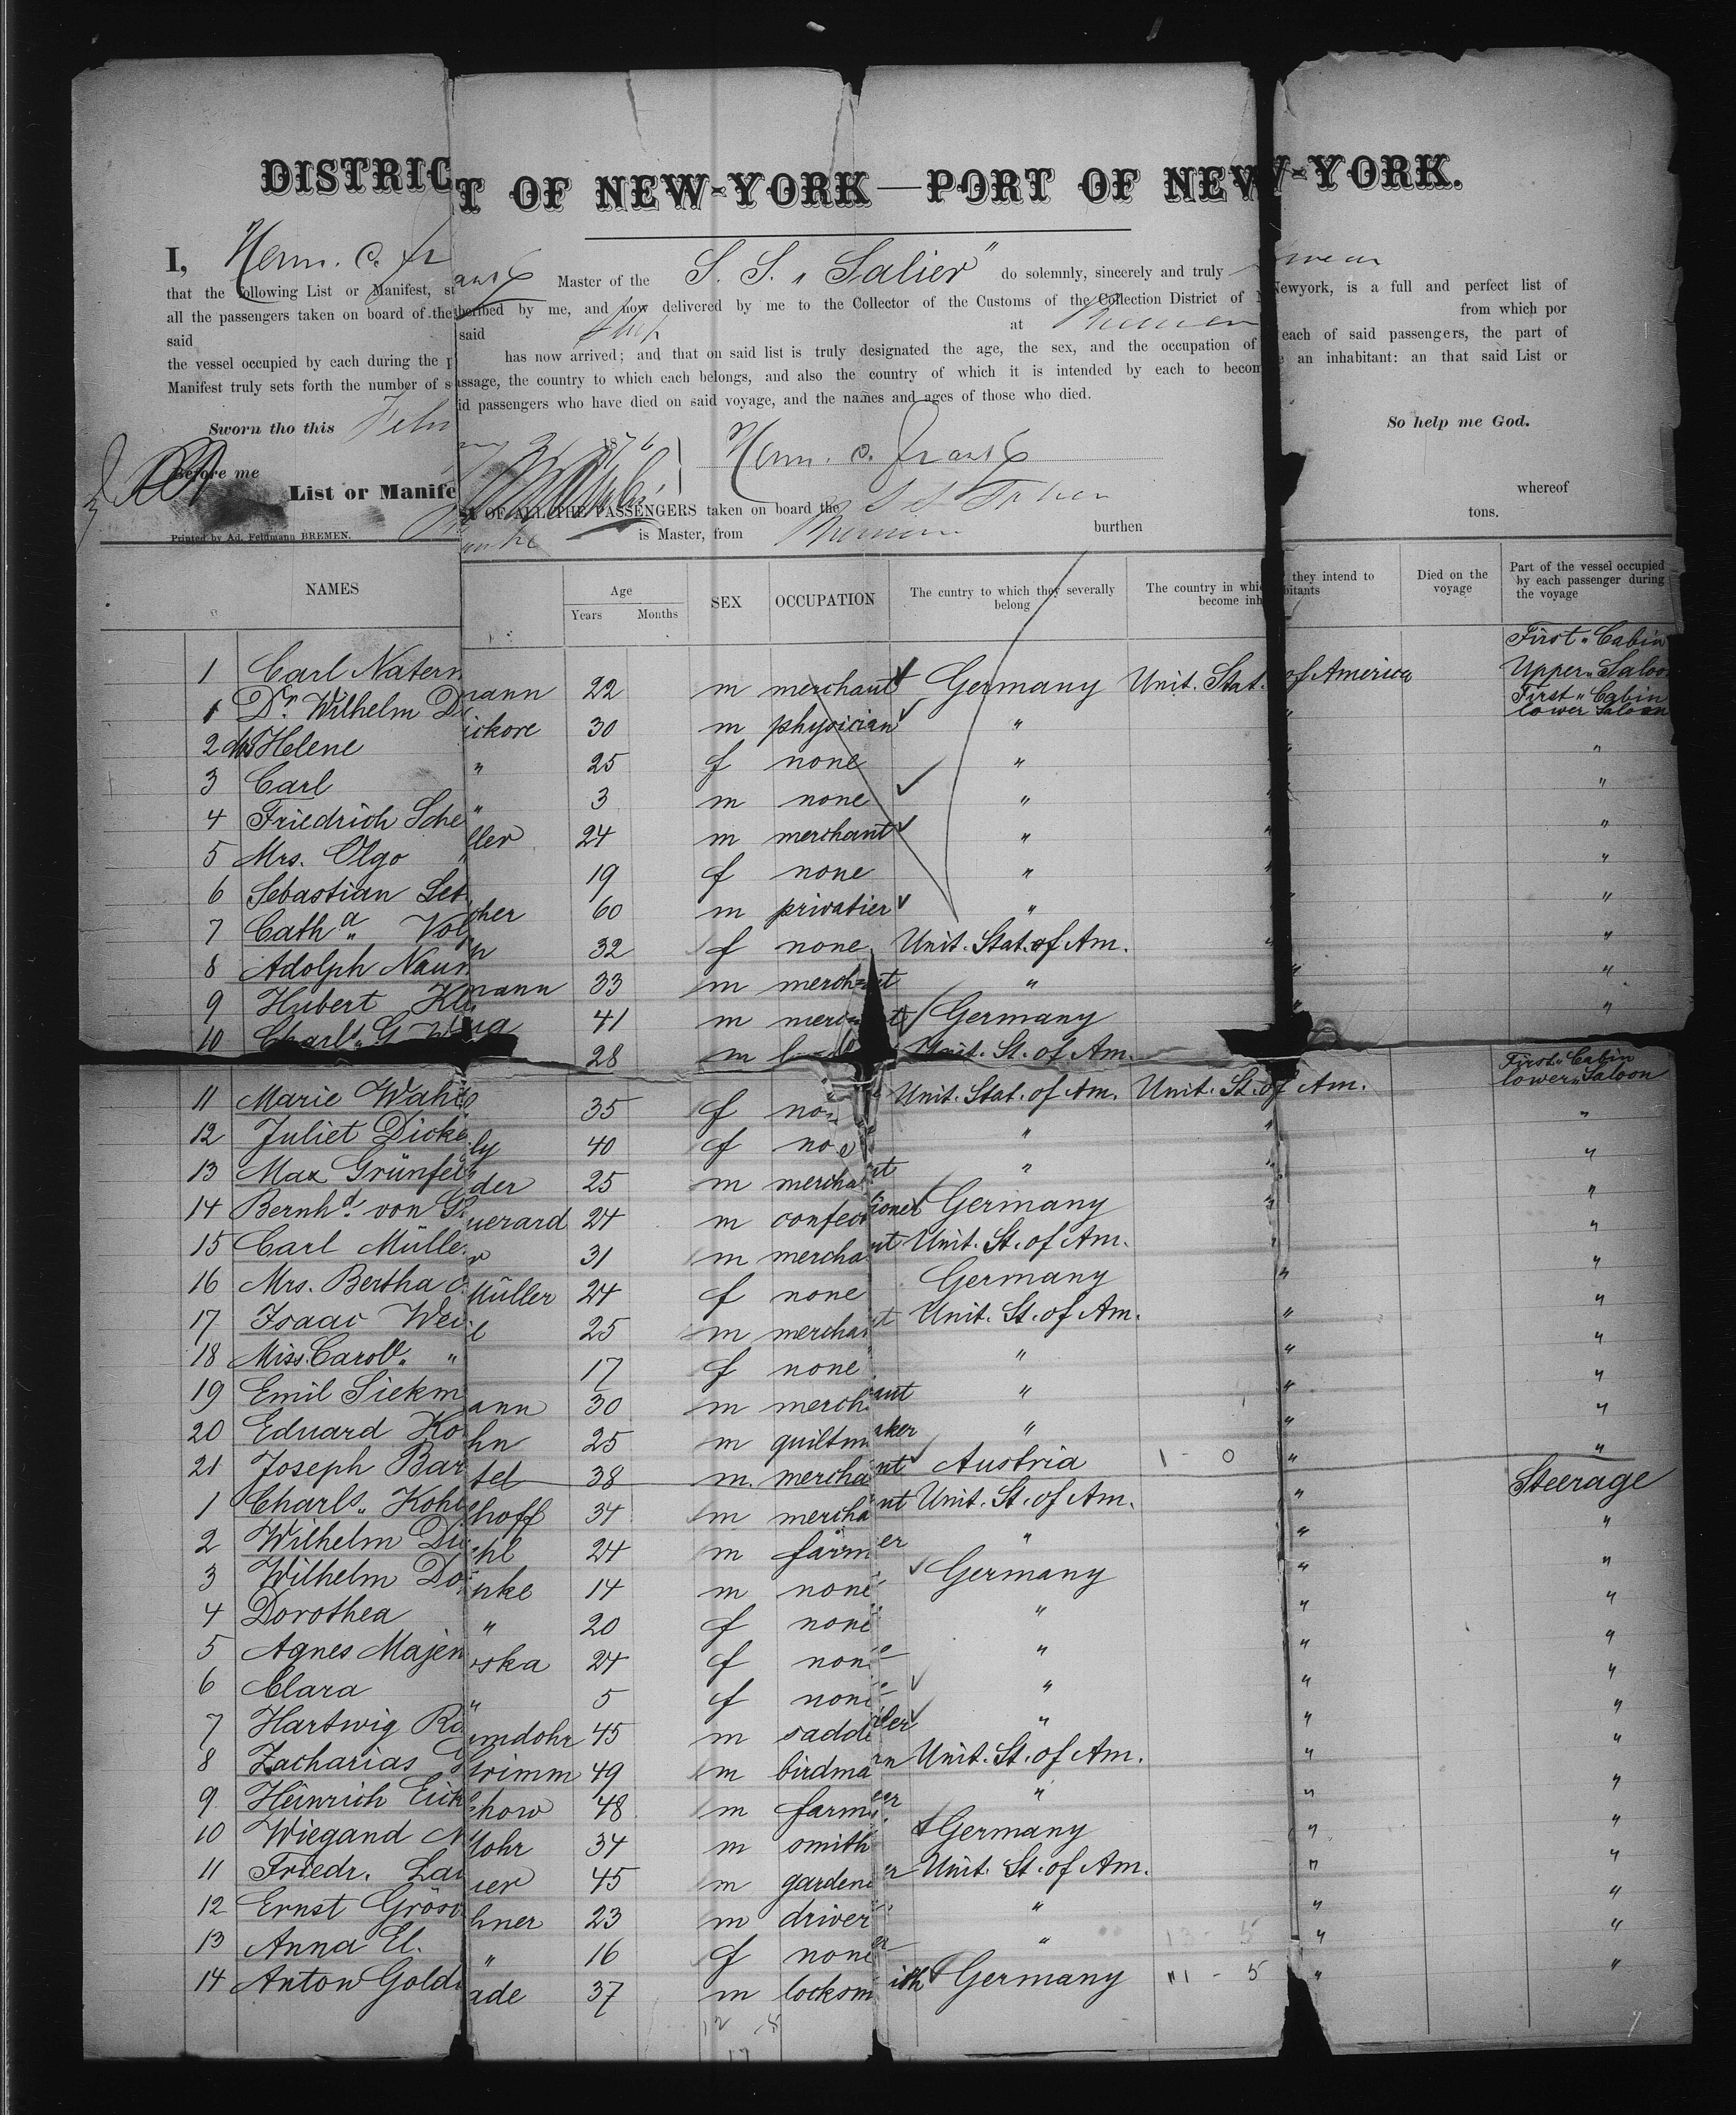 DISTRICT OF NEW-YORK—PORT OF NEW-YORK.
I, Herm. C. Franke Master of the S. S. "Salier" do solemnly, sincerely and truly swear
that the following List or Manifest, subscribed by me, and now delivered by me to the Collector of the Customs of the Collection District of Newyork, is a full and perfect list of
all the passengers taken on board of the said Ship at Bremen from which por
said has now arrived; and that on said list is truly designated the age, the sex, and the occupation of each of said passengers, the part of
the vessel occupied by each during the passage, the country to which each belongs, and also the country of which it is intended by each to become an inhabitant: an that said List or
Manifest truly sets forth the number of said passengers who have died on said voyage, and the names and ages of those who died.
Sworn tho this 1876 So help me God.
Before me Herm. C. Franke
List or Manifest OF ALL THE PASSENGERS taken on board the S S whereof
is Master, from Bremen burthen tons.
Printed by Ad. Feldmann BREMEN.
NAMES Age Years Months SEX OCCUPATION The cuntry to which they severally belong The country in which they intend to become inhabitants Died on the voyage Part of the vessel occupied by each passenger during the voyage
1 Carl Natermann 22 m merchant Germany Unit. Stat. of America First " Cabin Upper " Saloon
1 Dr. Wilhelm Dickore 30 m physician " " First " Cabin lower Saloon
2 Helene " 25 f none " " "
3 Carl " 3 m none " " "
4 Friedrich Scheller 24 m merchant " " "
5 Mrs. Olgo " 19 f none " " "
6 Sebastian 60 m privatier " " "
7 Cath.a " 32 f none Unit. Stat. of Am. " "
8 Adolph Naumann 33 m merchant " " "
9 Hubert 41 m merchant Germany " "
10 Charl. G. 28 m Unit. St. of Am.
11 Marie 35 f none Unit. Stat. of Am. Unit. St. of Am. First " Cabin lower " Saloon
12 Juliet 40 f none " " "
13 Max Grünfelder 25 m merchant " " "
14 Bernh.d von Guerard 24 m confectioner Germany " "
15 Carl Müller 31 m merchant Unit. St. of Am. " "
16 Mrs. Bertha Müller 24 f none Germany " "
17 Isaac Weil 25 m merchant Unit. St. of Am. " "
18 Miss. Carol. " 17 f none " " "
19 Emil Siekmann 30 m merchant " " "
20 Eduard Kohn 25 m quiltmaker " " "
21 Joseph Bartel 38 m. merchant Austria 1 - 0 " "
1 Charls. Kohlhoff 34 m merchant Unit. St. of Am. " Steerage
2 Wilhelm Diehl 24 m farmer " " "
3 Wilhelm 14 m none Germany " "
4 Dorothea " 20 f none " " "
5 Agnes Majewska 24 f none " " "
6 Clara " 5 f none " " "
7 Hartwig Ramdohr 45 m saddler " " "
8 Zacharias Grimm 49 m birdman Unit. St. of Am. " "
9 Heinrich Eickhow 48 m farmer " " "
10 Wiegand Mohr 34 m smith Germany " "
11 Friedr. Lauer 45 m gardener Unit. St. of Am. " "
12 Ernst Gröschner 23 m driver " " "
13 Anna El. " 16 f none " 13 - 5 " "
14 Anton Goldade 37 m locksmith Germany 11 - 5 " "